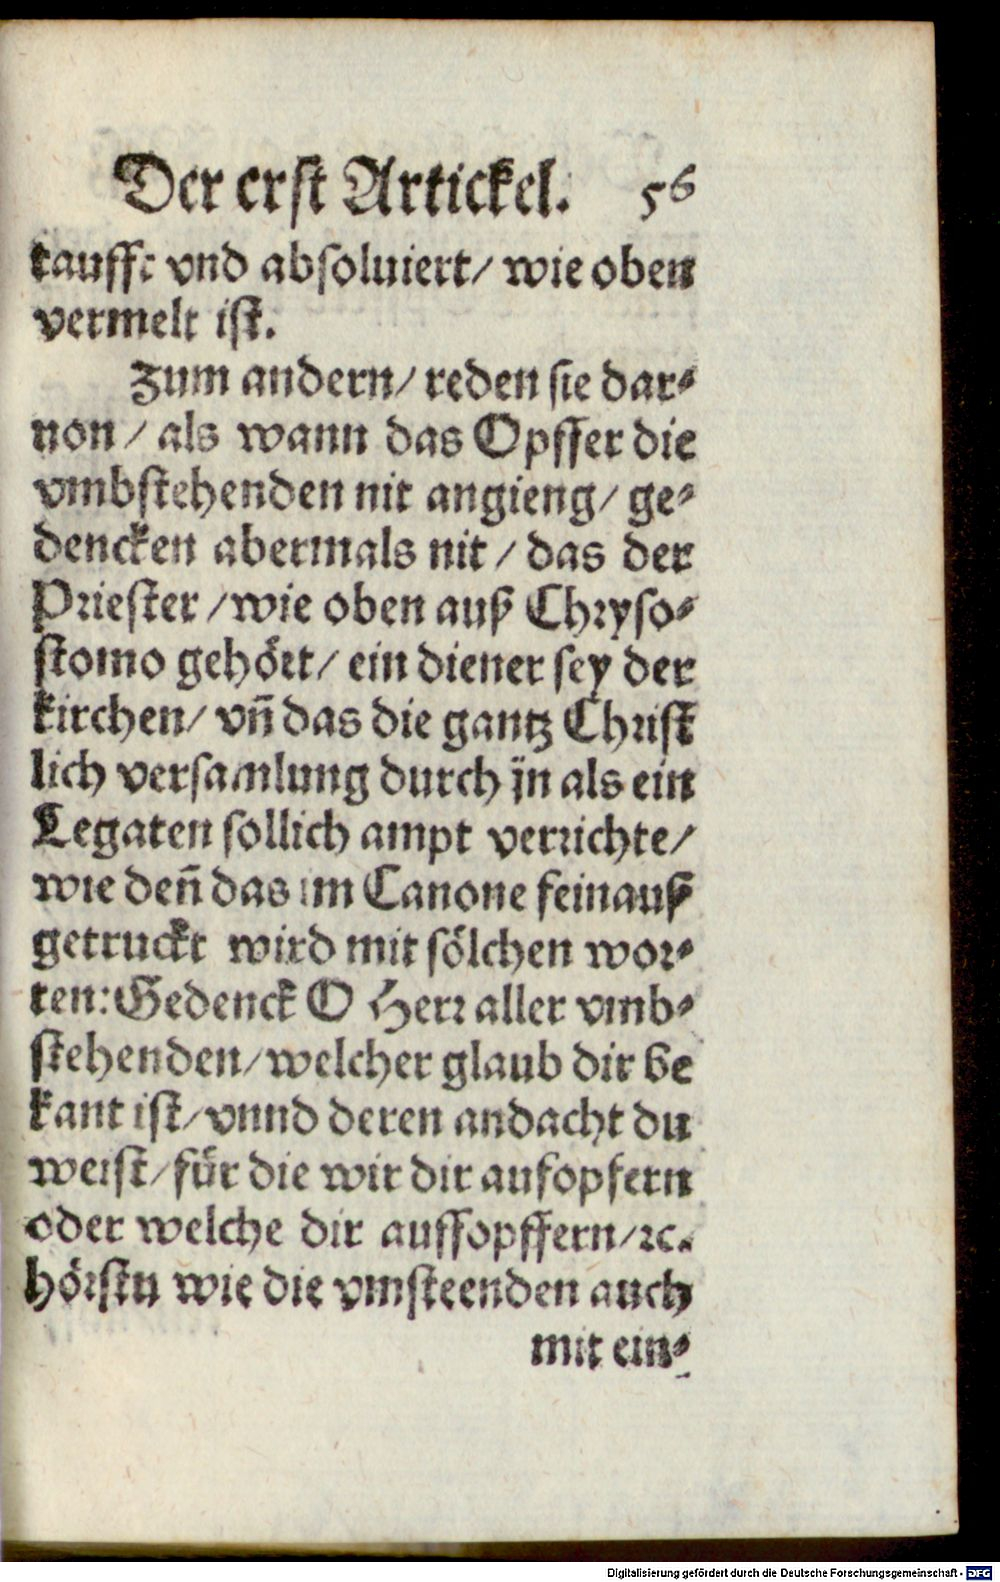 Der erst Artickel. 56
taufft vnd absoluiert/ wie oben
vermelt ist.
Zum andern/ reden sie dar⸗
uon/ als wann das Opffer die
vmbstehenden nit angieng/ ge⸗
dencken abermals nit/ das der
Priester/ wie oben auß Chryso⸗
stomo gehört/ ein diener sey der
kirchen/ vñ das die gantz Christ
lich versamlung durch jn als ein
Legaten sollich ampt verrichte/
wie deñ das im Canone fein auß
getruckt wird mit sölchen wor⸗
ten: Gedenck O Herr aller vmb⸗
stehenden/ welcher glaub dir be
kant ist/ vnnd deren andacht du
weist/ für die wir dir aufopfern
oder welche dir auffopffern/ ꝛc.
hörstu wie die vmsteenden auch
mit ein⸗
Digitalisierung gefördert durch die Deutsche Forschungsgemeinschaft - DFG